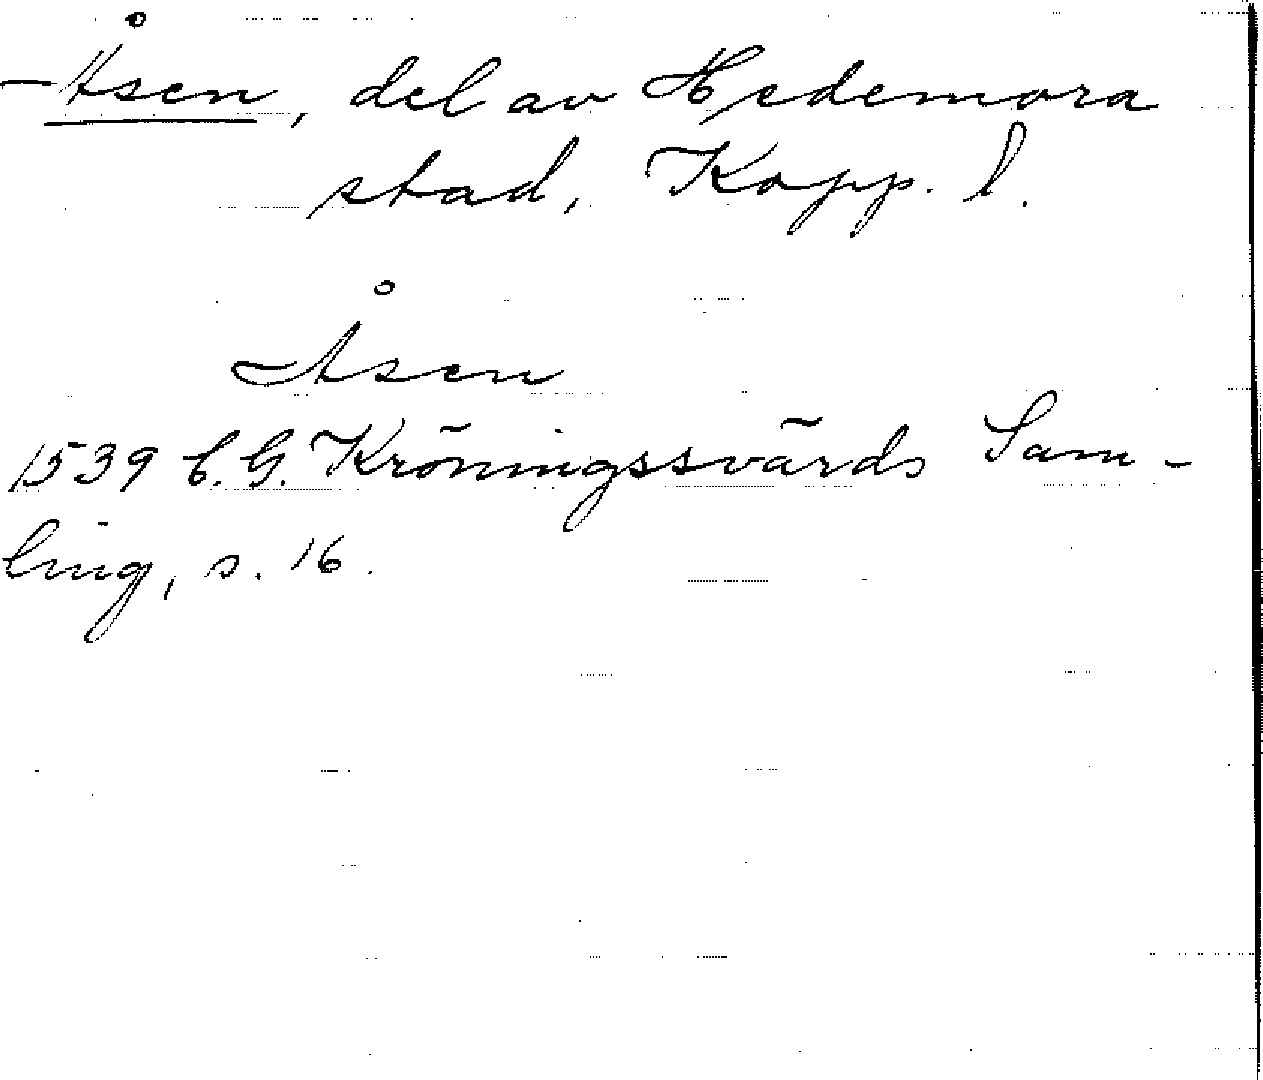 Åsen, del av Hedemora
stad, Kopp. l.
Åsen
1539 C.G. Kröningssvärds Sam-
ling, s. 16.